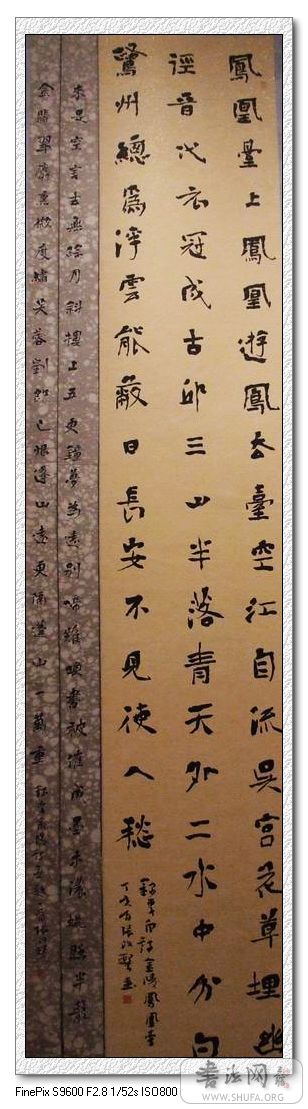 鳳凰臺上鳳凰遊鳳去臺空江自流吳宮花草埋幽
徑晉代衣冠成古邱三山半落青天外二水中分白
鷺州總爲浮雲能蔽日長安不見使人愁
錄李白詩金陵鳳凰臺
丁亥
來是空言去無踪月斜樓上五更鐘夢爲遠別啼難喚書被催成墨未濃蠟照半籠
金翡翠麝熏微度繡芙蓉劉郎已恨蓬山遠更隔蓬山一萬重
書法网
WWW.SHUFA.ORG
FinePix S9600 F2.8 1/52s ISO800